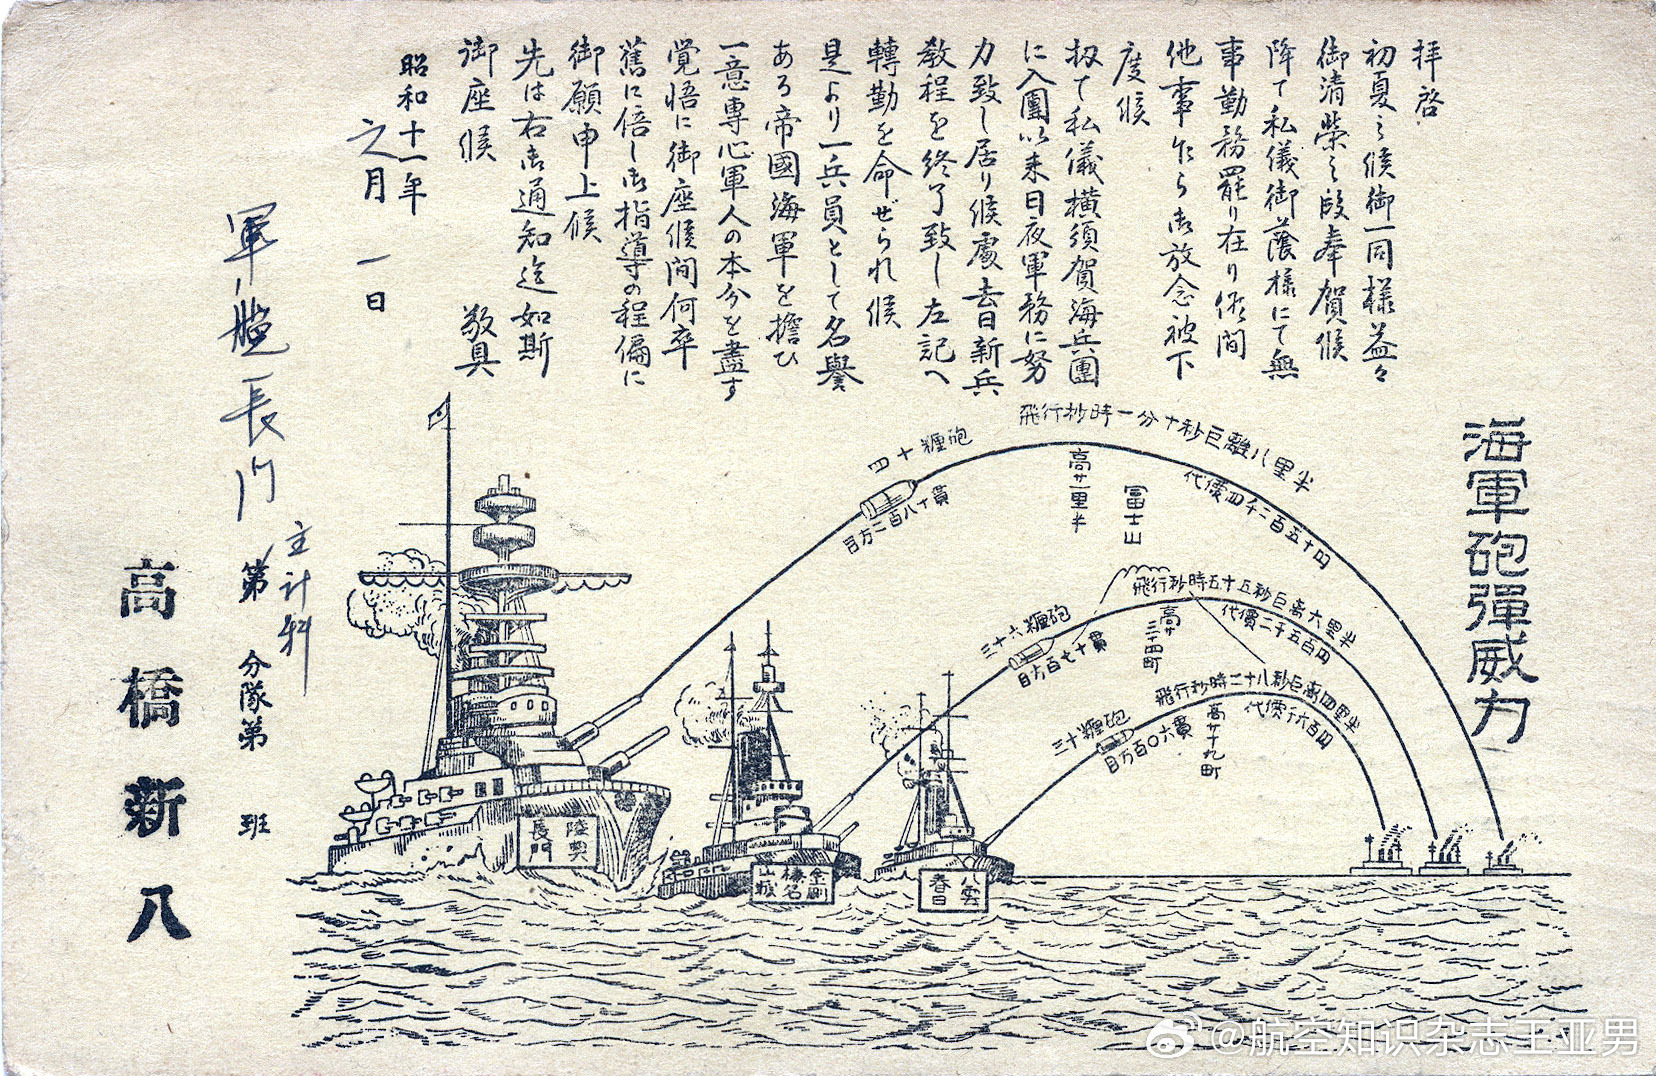 拝啓
初夏之候御一同様益々
御清榮之段奉賀候
降て私儀御蔭様にて無
事勤務罷り在り候間
他事乍ら御放念被下
度候
扨て私儀横須賀海兵團
に入團以来日夜軍務に努
力致し居り候處去日新兵
教程を終了致し左記へ
轉勤を命ぜられ候
是より一兵員として名譽
ある帝國海軍を擔ひ
一意專心軍人の本分を盡す
覚悟に御座候間何卒
舊に倍し御指導の程偏に
御願申上候
先は右御通知迄如斯
御座候 敬具
昭和十一年
之月 一日
軍艦長門
主計科
第 分隊第 班
高橋新八
海軍砲彈威力
飛行秒時一分十秒巨離八里半
四十糎砲
目方二百八十貫
高サ二里半
代價四千二百五十円
冨士山
飛行秒時五十五秒巨離六里半
三十六糎砲
目方百七十貫
高サ三十四町
代價二千五百円
飛行秒時二十八秒巨離四里半
三十糎砲
目方百〇六貫
高サ十九町
代價千六百円
陸奥
長門
金剛
榛名
山城
八雲
春日
@航空知识杂志王亚男